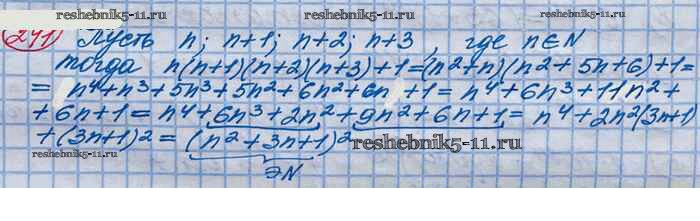 reshebnik5-11.ru reshebnik5-11.ru
241) Пусть n; n+1; n+2; n+3, где n∈N
тогда n(n+1)(n+2)(n+3)+1=(n²+n)(n²+5n+6)+1=
= n⁴+n³+5n³+5n²+6n²+6n+1= n⁴+6n³+11n²+
+6n+1= n⁴+6n³+2n²+9n²+6n+1= n⁴+2n²(3n+1)
+(3n+1)²= (n²+3n+1)²
reshebnik5-11.ru
∋N
reshebnik5-11.ru